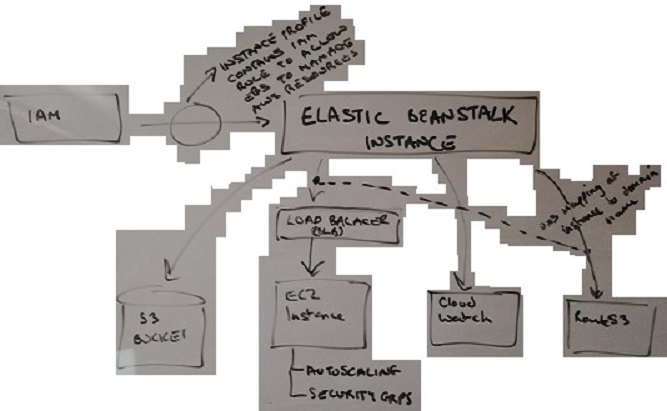 INSTANCE PROFILE
CONTAINS IAM
ROLE TO ALLOW
EBS TO MANAGE
AWS RESOURCES
IAM
ELASTIC BEANSTALK
INSTANCE
DNS Mapping of
instance to domain
name
LOAD BALACER
(ELB)
S3
BUCKET
EC2
Instance
Cloud
Watch
Route53
AUTOSCALING
SECURITY GRPS